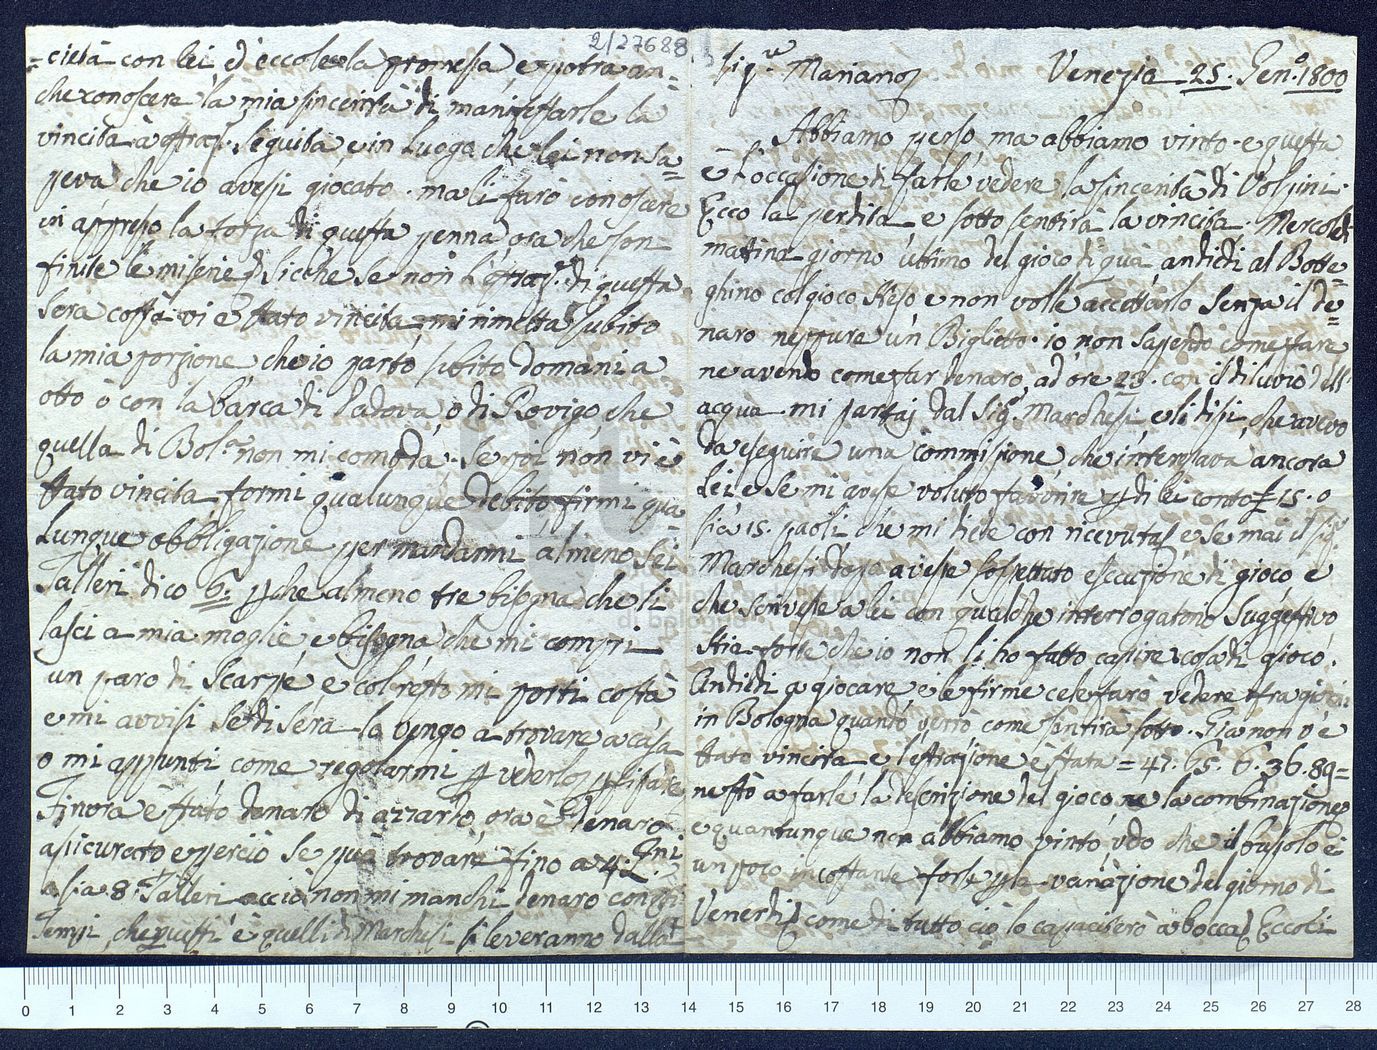 2/27688
= cietà con lei ed eccole la promessa e potrà an=
che conoscere la mia sincerità di manifestarle la
vincita seguita, e in Luogo che lei non sa=
peva che io avessi giocato. ma li farò conoscere
in appresso la forza di questa penna ora che son
finite le miserie se non di questa
sera costà vi è stato vincita mi rimetta subito
la mia porzione che io partò subito domani a
otto ò con la barca di Padova, o di Rovigo, che
quella di Bol.a non mi comoda. Se poi non vi è
stato vincita, formi qualunque debito firmi qua=
lunque obbligazione per mandarmi almeno sei
Talleri dico 6. pche almeno tre bisogna che li
lasci a mia moglie, e bisogna che mi compri
un paro di Scarpe e col resto mi porti costà
e mi avvisi se di sera lo vengo a trovare a casa
o mi appunti come regolarmi p vederlo
Finora è stato denaro di azzardo, ora è denaro
assicurato e perciò se può trovare fino a 4. Zni
o sia 8. Talleri acciò non mi manchi denaro
Tempi, che questi è quelli di Marchesi si leveranno dalla
Sig.re Mariano Venezia 25. Gen.o 1800
Abbiamo perso ma abbiamo vinto. e questa
è l'occasione di farle vedere la sincerità di Volpini.
Ecco la perdita e sotto sentirà la vincita. Mercoledì
matina giorno ultimo del gioco di quà andidi al Botte=
ghino col gioco steso e non volle accettarlo senza il de=
naro neppure un Biglietto. io non sapendo come fare
ne avendo come far denaro, ad ore 23. con il diluvio dell'
acqua mi portaj dal Sig.r Marchesi, e li dissi, che avevo
da eseguire una commissione che interessava ancora
Lei, e se mi avesse voluto favorire p di lei conto 15. o
sia 15. paoli che mi diede con ricevuta e se mai il Sig.
Marchesi doppo avesse sospettato esecuzione di gioco e
che scrivesse a lei con qualche interrogatorio Suggestivo
stia forte che io non li ho fatto capire cosa di gioco.
Andidi a giocare e le firme ce le farò vedere fra giorni
in Bologna quando verrò come sentirà sotto. Già non v'è
stato vincita e l'estrazione è stata = 47. 65. 6. 36. 89=
resto a farle la descrizione del gioco ne la combinazione
e quantunque non abbiamo vinto, vdo che il bussolo è
un poco incostante forse p la variazione del giorno di
Venerdì come di tutto ciò lo capaciterò a bocca Eccoli
0 1 2 3 4 5 6 7 8 9 10 11 12 13 14 15 16 17 18 19 20 21 22 23 24 25 26 27 28